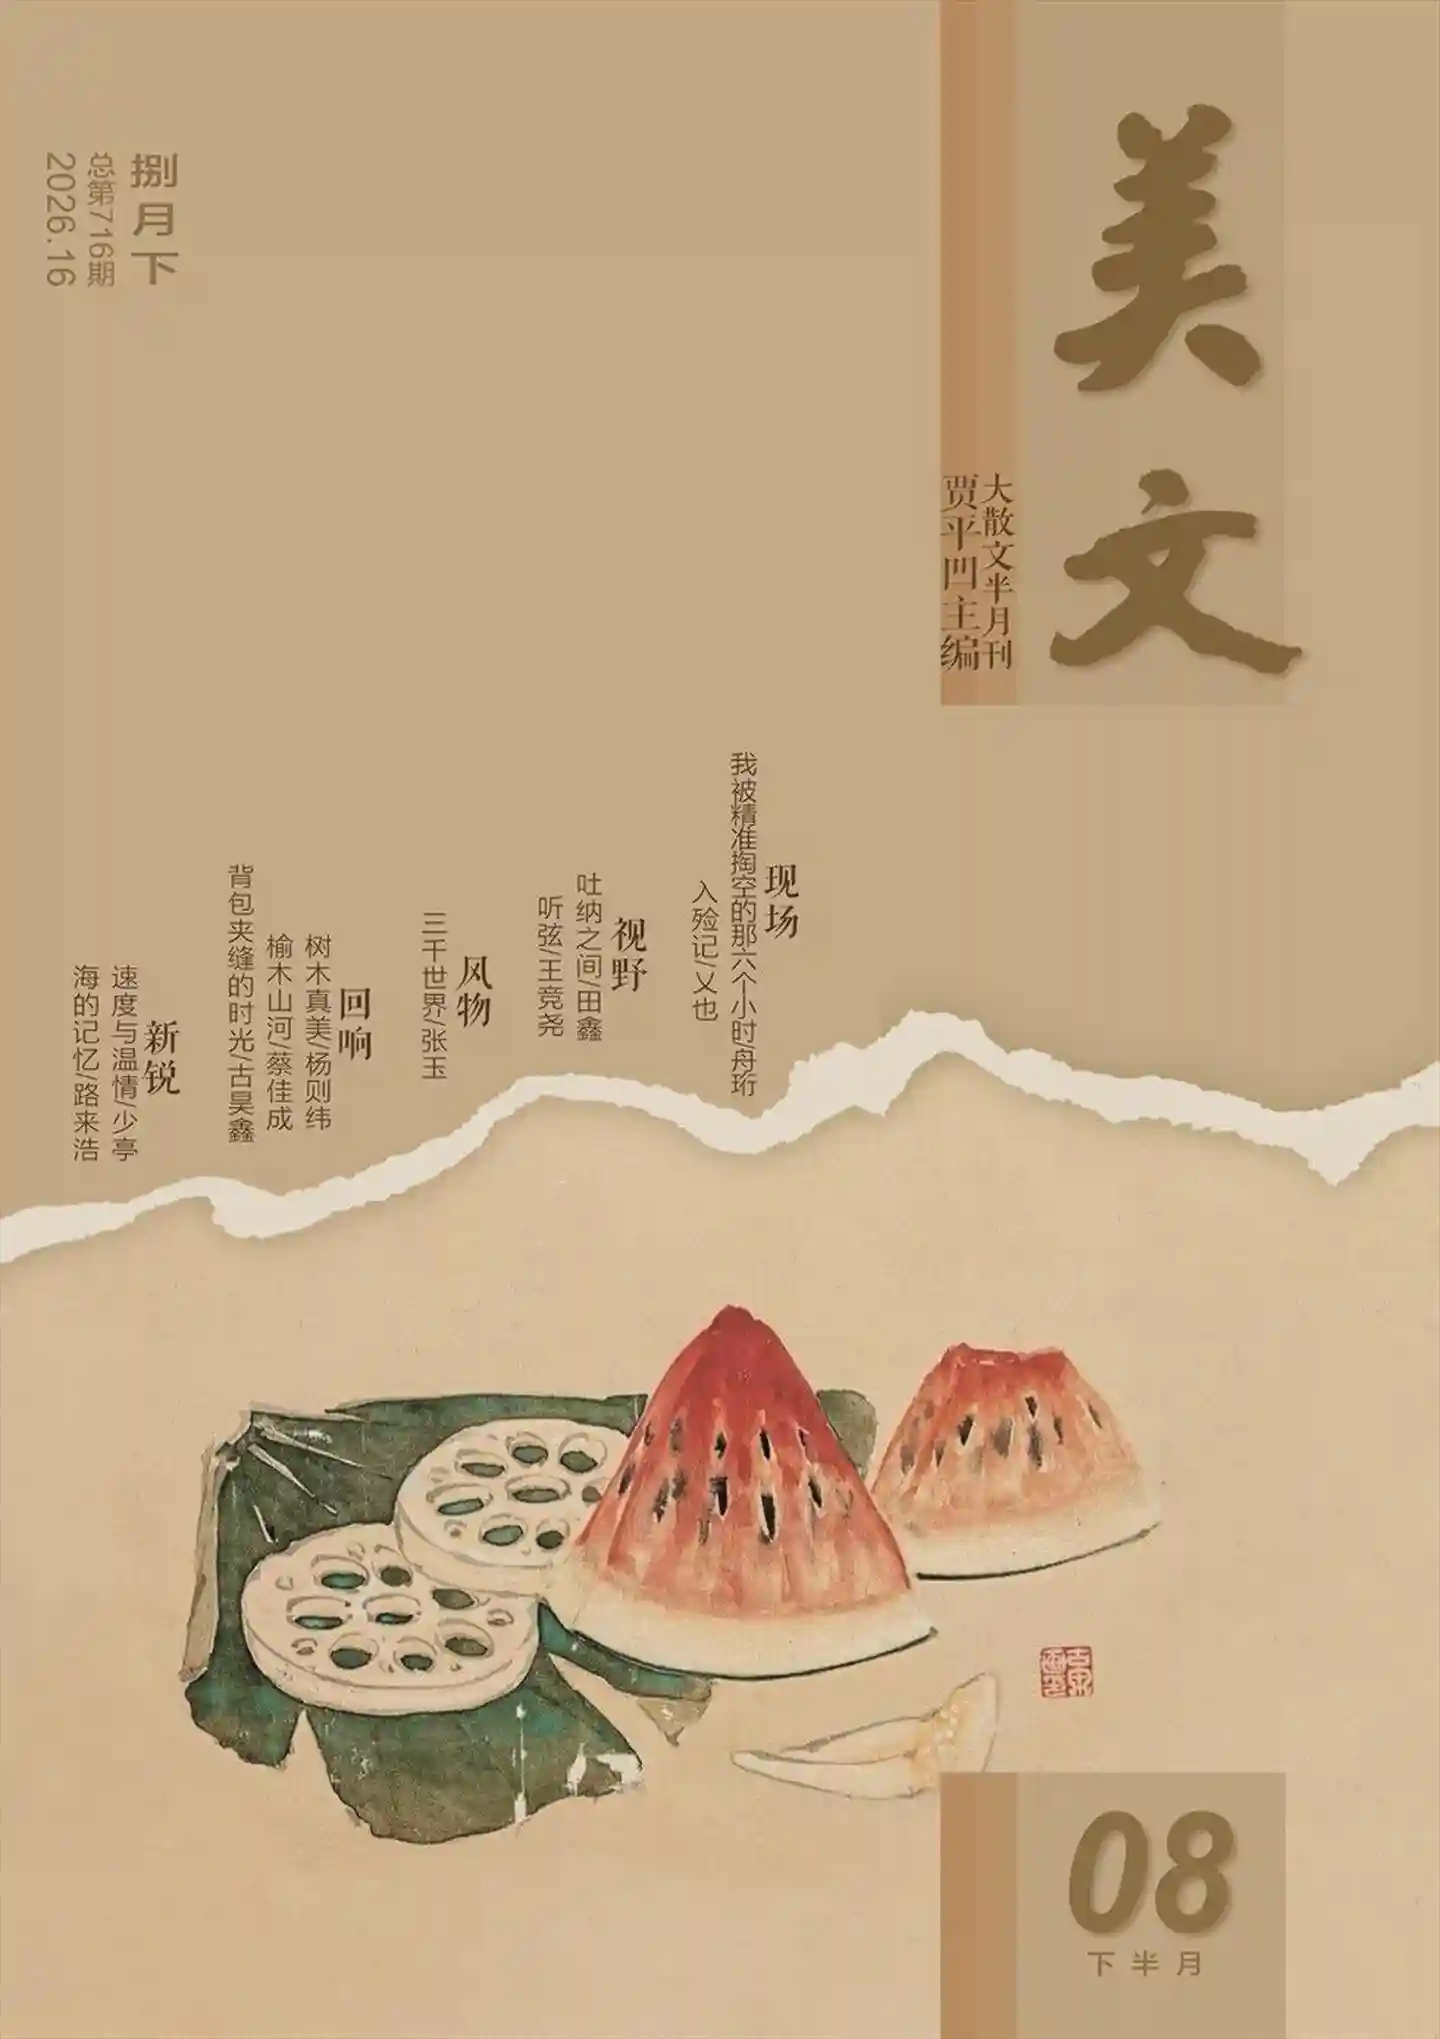 美文
大散文半月刊
贾平凹主编
捌月下
总第716期
2026.16
现场
我被精准掏空的那六个小时/舟珩
入殓记/乂也
视野
吐纳之间/田鑫
听弦/王竞尧
风物
三千世界/张玉
回响
树木真美/杨则纬
榆木山河/蔡佳成
背包夹缝的时光/古昊鑫
新锐
速度与温情/少亭
海的记忆/路来浩
08
下半月